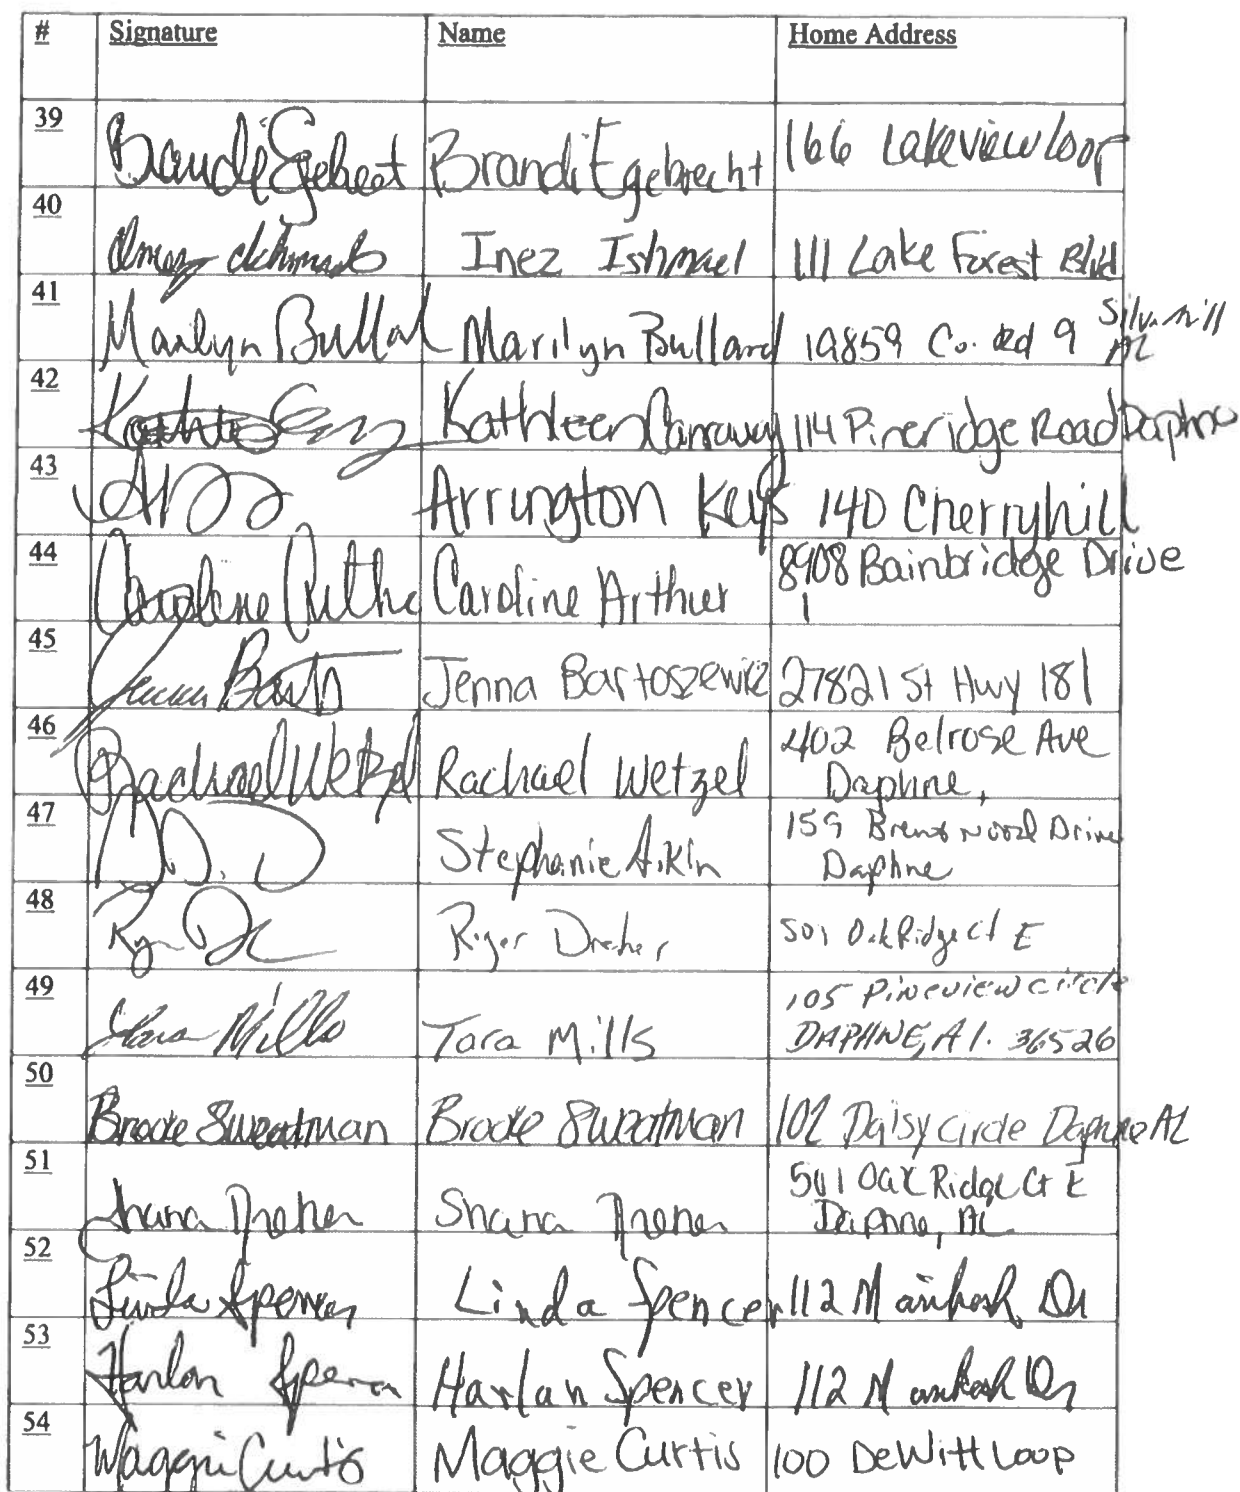 # Signature Name Home Address
39 Brandi Egebrecht Brandi Egebrecht 166 Lakeview Loop
40 Inez Ishmael Inez Ishmael 111 Lake Forest Blvd
41 Marilyn Bullard Marilyn Bullard 19859 Co. Rd 9 Silverhill AL
42 Kathleen Kathleen Carraway 114 Pineridge Road Daphne
43 Arrington Keys 140 Cherryhill
44 Caroline Arthur Caroline Arthur 8908 Bainbridge Drive
45 Jenna Bart Jenna Bartoszewicz 27821 St Hwy 181
46 Rachael Wetzel Rachael Wetzel 402 Belrose Ave
Daphne,
47 Stephanie Aikin 159 Brentwood Drive
Daphne
48 Roger Dreher 501 Oak Ridge Ct E
49 Tara Mills Tara Mills 105 Pineview circle
DAPHNE, Al. 36526
50 Brooke Sweatman Brooke Sweatman 102 Daisy Circle Daphne AL
51 Shana Dreher Shana Dreher 501 Oak Ridge Ct E
Daphne, AL
52 Linda Spencer Linda Spencer 112 Dr
53 Harlan Spencer Harlan Spencer 112 Dr
54 Maggie Curtis Maggie Curtis 100 DeWitt Loop